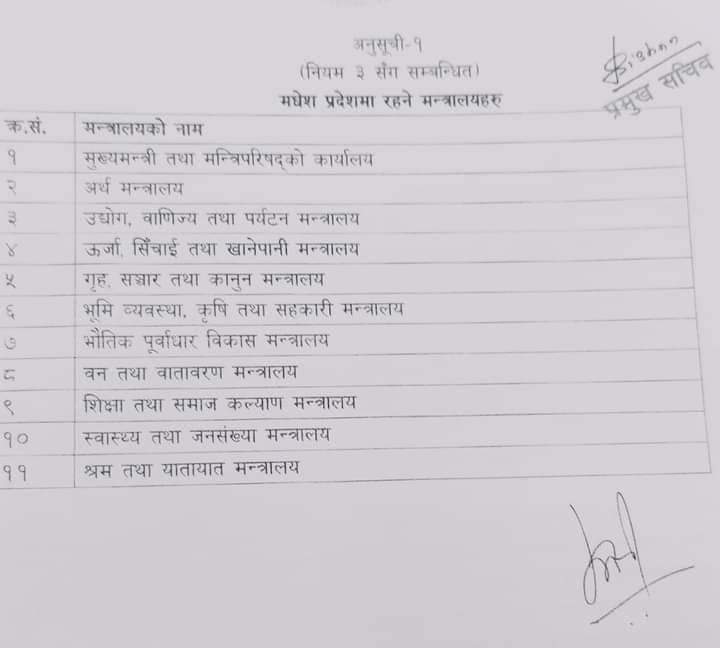 अनुसूची-१
(नियम ३ सँग सम्बन्धित)
मधेश प्रदेशमा रहने मन्त्रालयहरु
प्रमुख सचिव
क्र.सं. मन्त्रालयको नाम
१ मुख्यमन्त्री तथा मन्त्रिपरिषद्को कार्यालय
२ अर्थ मन्त्रालय
३ उद्योग, वाणिज्य तथा पर्यटन मन्त्रालय
४ ऊर्जा, सिँचाई तथा खानेपानी मन्त्रालय
५ गृह, सञ्चार तथा कानुन मन्त्रालय
६ भूमि व्यवस्था, कृषि तथा सहकारी मन्त्रालय
७ भौतिक पूर्वाधार विकास मन्त्रालय
८ वन तथा वातावरण मन्त्रालय
९ शिक्षा तथा समाज कल्याण मन्त्रालय
१० स्वास्थ्य तथा जनसंख्या मन्त्रालय
११ श्रम तथा यातायात मन्त्रालय